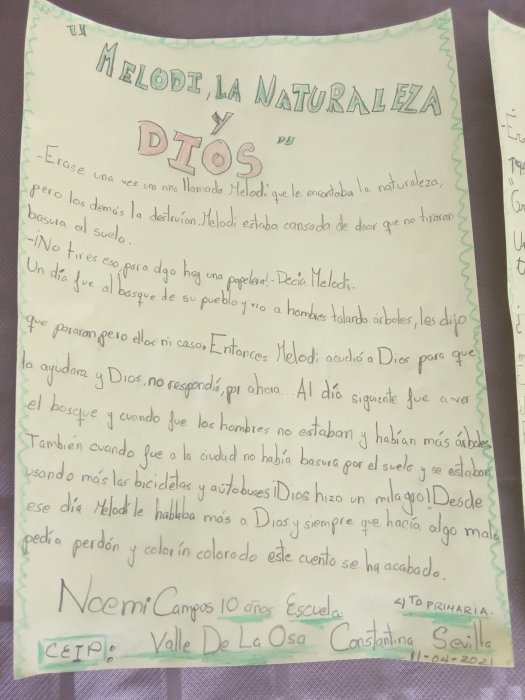 "MELODI, LA NATURALEZA
Y
DIOS"
-Erase una vez una niña llamada Melodi que le encantaba la naturaleza,
pero los demás la destruían. Melodi estaba cansada de decir que no tiraran
basura al suelo.
-¡No tires eso, para algo hay una papelera!-Decía Melodi.
Un día fue al bosque de su pueblo y vio a hombres talando árboles, les dijo
que pararan, pero ellos ni caso. Entonces Melodi acudió a Dios para que
la ayudara y Dios, no respondía, por ahora... Al día siguiente fue a ver
el bosque y cuando fue los hombres no estaban y habían más árboles.
También cuando fue a la ciudad no había basura por el suelo y se estaban
usando más las bicicletas y autobuses ¡Dios hizo un milagro! Desde
ese día Melodi le hablaba más a Dios y siempre que hacía algo malo
pedía perdón y colorín colorado este cuento se ha acabado.
Noemi Campos 10 años Escuela 4TO PRIMARIA.
CEIP: Valle De La Osa Constantina Sevilla
11-04-2021